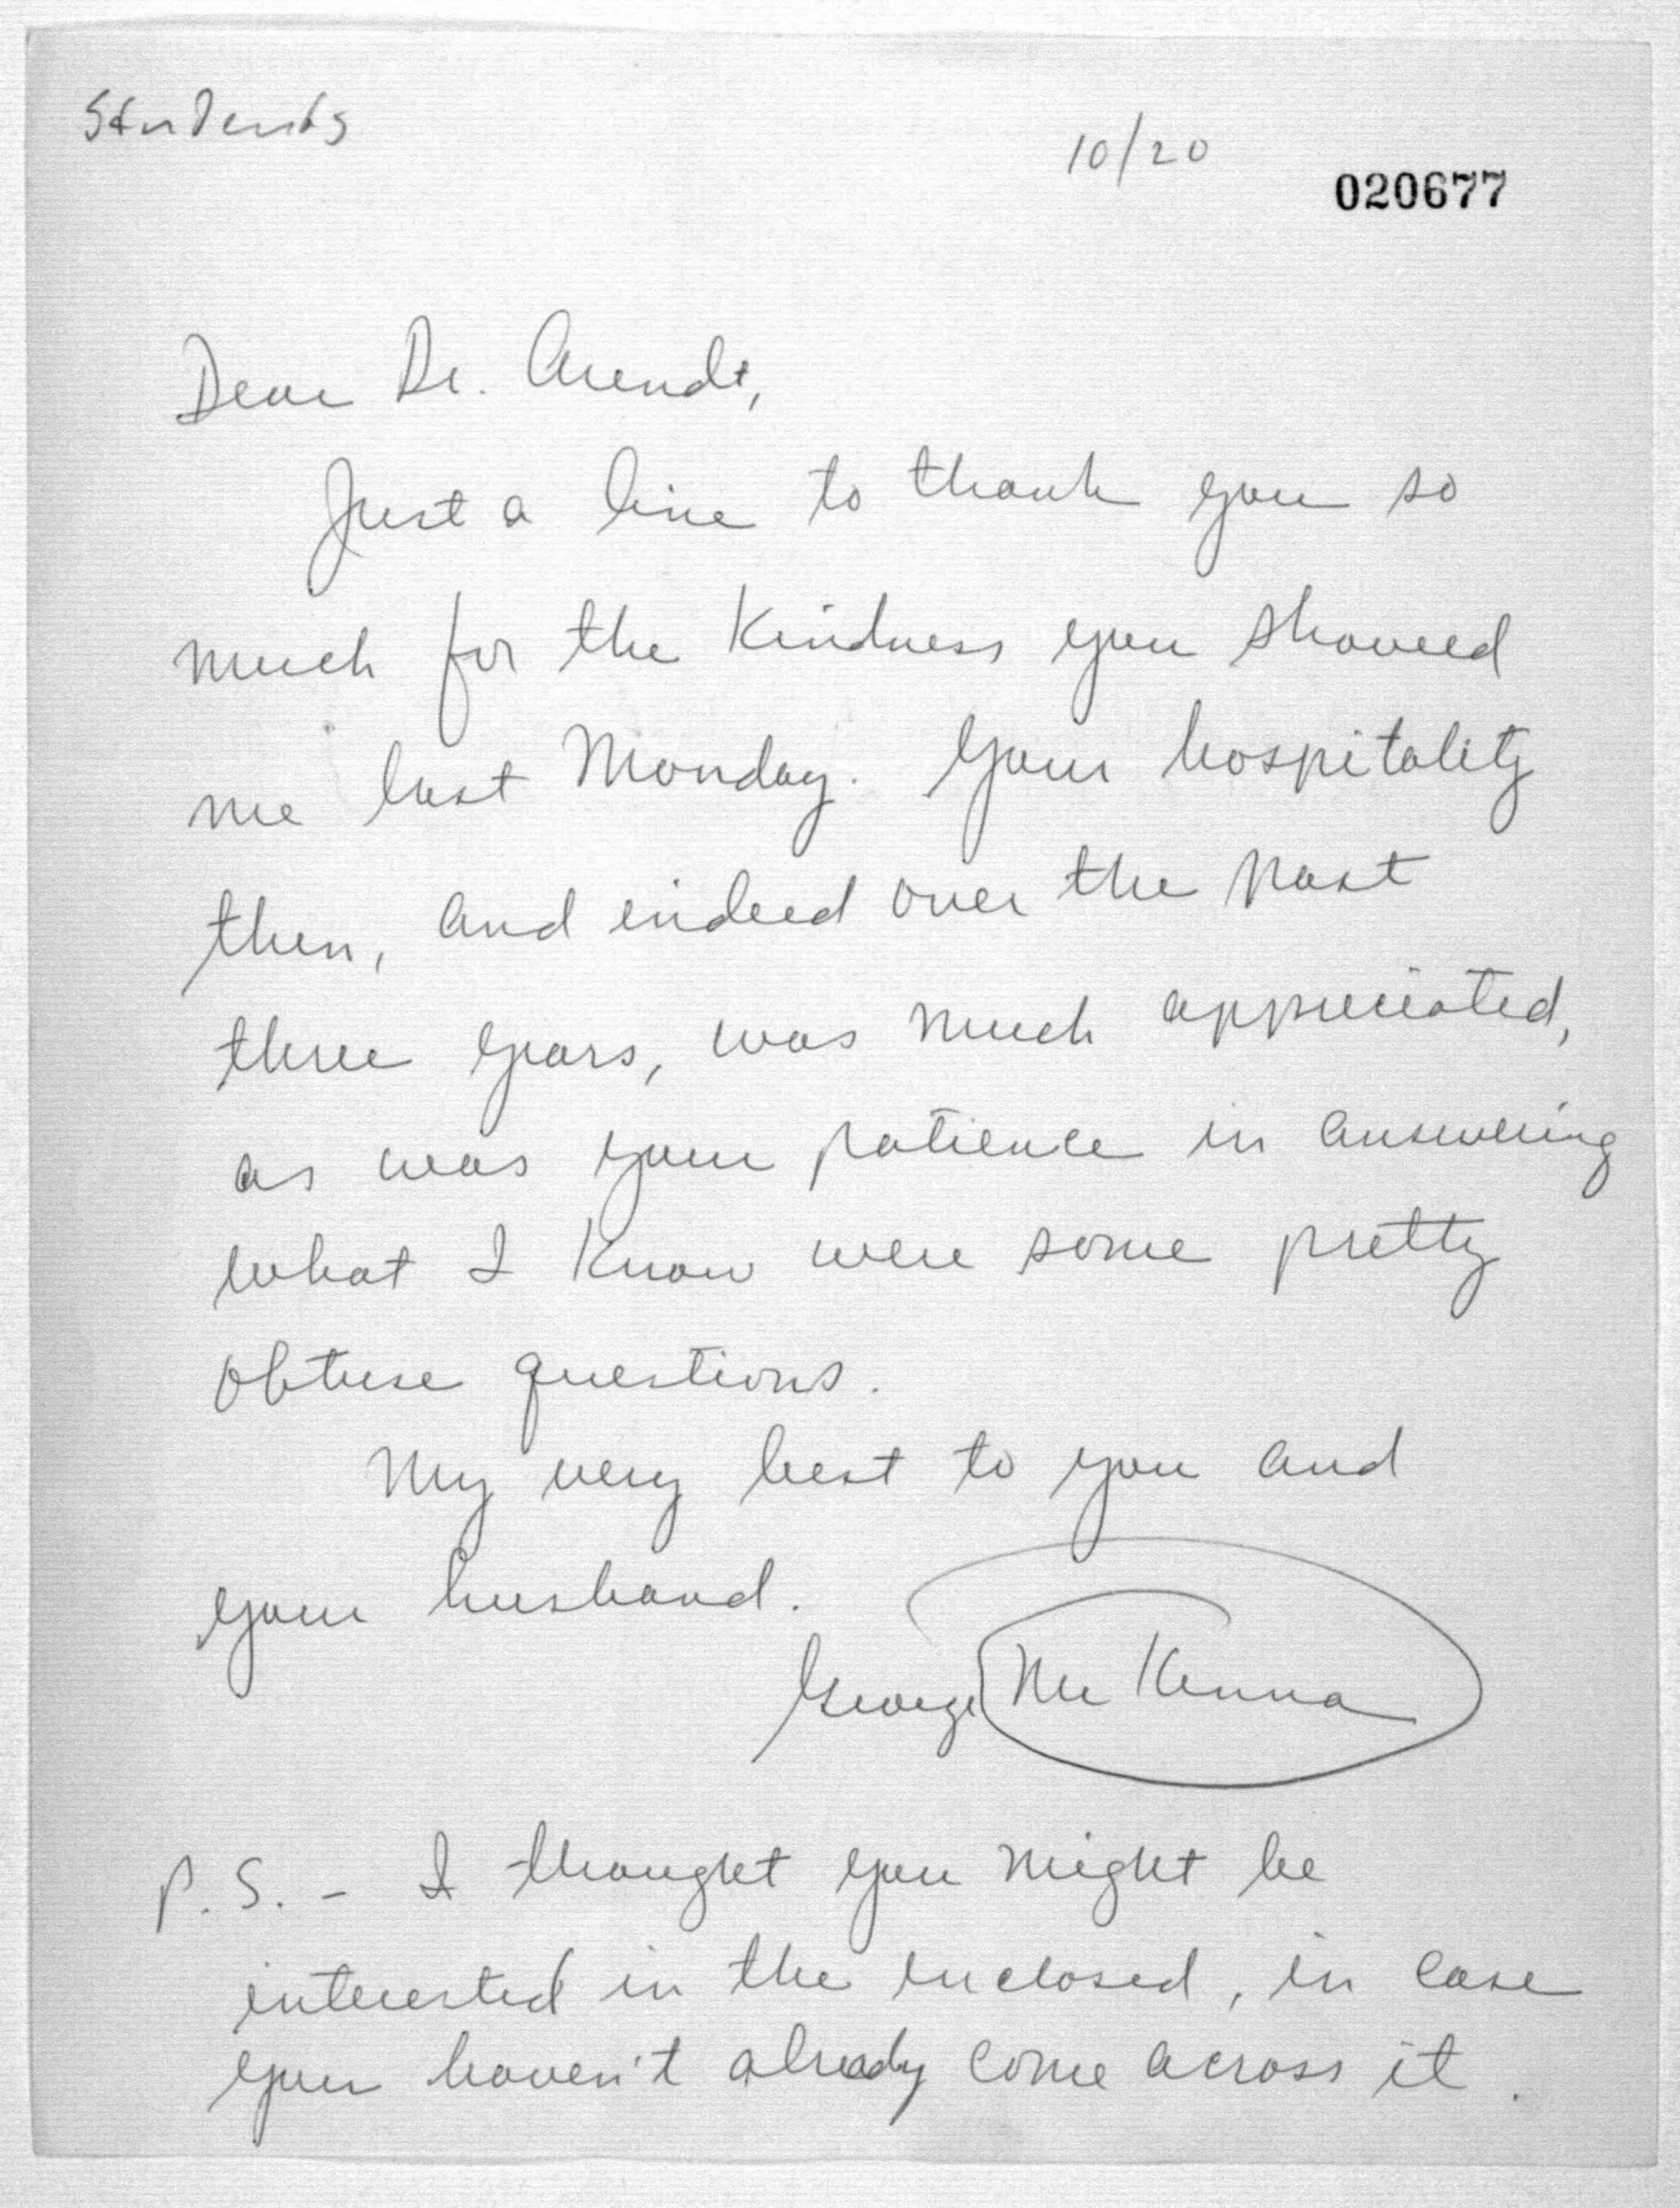 Students
10/20
020677
Dear Dr. Arendt,
Just a line to thank you so
much for the kindness you showed
me last Monday. Your hospitality
then, and indeed over the past
three years, was much appreciated,
as was your patience in answering
what I know were some pretty
obtuse questions.
My very best to you and
your husband.
George McKenna
P.S. - I thought you might be
interested in the enclosed, in case
you haven't already come across it.